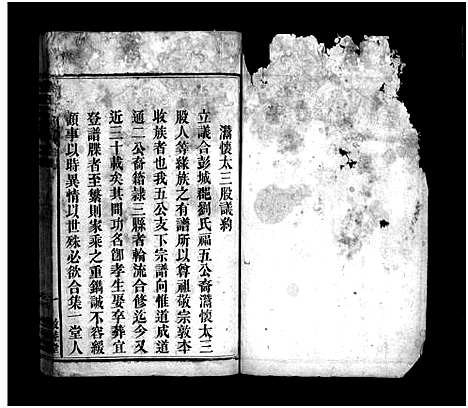 灊懷太三股議約
立議合彭城郡劉氏福五公裔灊懷太三
股人等緣族之有譜所以尊祖敬宗敦本
收族者也我五公支下宗譜向惟道成道
通二公裔籍隸三縣者輪流合修迄今又
近三十載矣其間功名節孝生娶卒葬宜
登譜牒者至繁則家乘之重鐫誠不容緩
顧事以時異情以世殊必欲合集一堂人